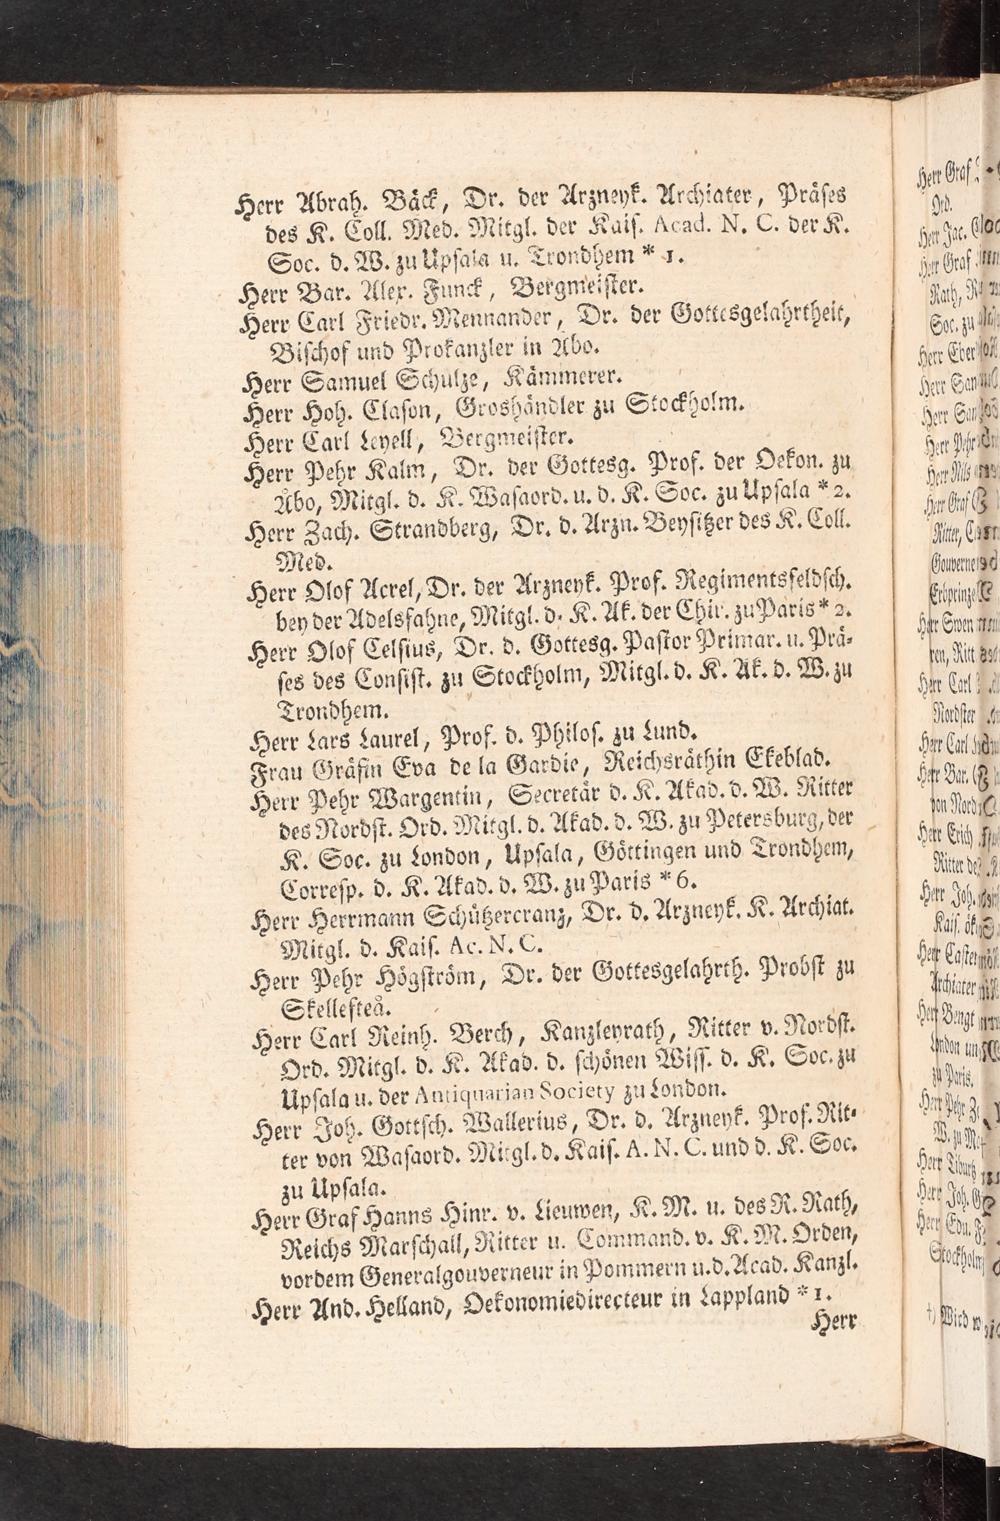 Herr Abrah. Bäck, Dr. der Arzneyk. Archiater, Präses
des K. Coll. Med. Mitgl. der Kais. Acad. N. C. der K.
Soc. d. W. zu Upsala u. Trondhem * 1.
Herr Bar. Alex. Funck, Bergmeister.
Herr Carl Friedr. Mennander, Dr. der Gottesgelahrtheit,
Bischof und Prokanzler in Abo.
Herr Samuel Schulze, Kämmerer.
Herr Hoh. Clason, Groshändler zu Stockholm.
Herr Carl Leyell, Bergmeister.
Herr Pehr Kalm, Dr. der Gottesg. Prof. der Oekon. zu
Åbo, Mitgl. d. K. Wasaord. u. d. K. Soc. zu Upsala * 2.
Herr Zach. Strandberg, Dr. d. Arzn. Beysitzer des K. Coll.
Med.
Herr Olof Acrel, Dr. der Arzneyk. Prof. Regimentsfeldsch.
bey der Adelsfahne, Mitgl. d. K. Ak. der Chir. zu Paris * 2.
Herr Olof Celsius, Dr. d. Gottesg. Pastor Primar. u. Prä-
ses des Consist. zu Stockholm, Mitgl. d. K. Ak. d. W. zu
Trondhem.
Herr Lars Laurel, Prof. d. Philos. zu Lund.
Frau Gräfin Eva de la Gardie, Reichsräthin Ekeblad.
Herr Pehr Wargentin, Secretär d. K. Akad. d. W. Ritter
des Nordst. Ord. Mitgl. d. Akad. d. W. zu Petersburg, der
K. Soc. zu London, Upsala, Göttingen und Trondhem,
Corresp. d. K. Akad. d. W. zu Paris * 6.
Herr Herrmann Schützercranz, Dr. d. Arzneyk. K. Archiat.
Mitgl. d. Kais. Ac. N. C.
Herr Pehr Högström, Dr. der Gottesgelahrth. Probst zu
Skellefteå.
Herr Carl Reinh. Berch, Kanzleyrath, Ritter v. Nordst.
Ord. Mitgl. d. K. Akad. d. schönen Wiss. d. K. Soc. zu
Upsala u. der Antiquarian Society zu London.
Herr Joh. Gottsch. Wallerius, Dr. d. Arzneyk. Prof. Rit-
ter von Wasaord. Mitgl. d. Kais. A. N. C. und d. K. Soc.
zu Upsala.
Herr Graf Hanns Hinr. v. Lieuwen, K. M. u. des R. Rath,
Reichs Marschall, Ritter u. Command. v. K. M. Orden,
vordem Generalgouverneur in Pommern u. d. Acad. Kanzl.
Herr And. Helland, Oekonomiedirecteur in Lappland * 1.
Herr
Herr Graf
Ord.
Herr Jac.
Herr Graf
Rath,
Soc. zu
Herr Eber
Herr Sam
Herr Sam
Herr Pehr
Herr Nils
Herr Graf
Ritter,
Gouverne
Erbprinze
Herr Swen
ren, Ritt
Herr Carl
Nordster
Herr Carl
Herr Bar.
von Nord
Herr Erich
Ritter de
Herr Joh.
Kais. ök
Herr Caster
Archiater
Herr Bengt
London un
zu Paris.
Herr Pehr
W. zu
Herr Tiburtz
Herr Joh.
Herr Edu.
Stockholm
†) Wird